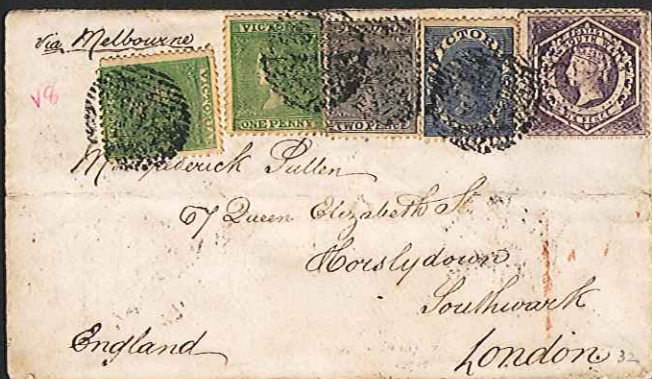 via Melbourne
V8
VICTORIA
VICTORIA
ONE PENNY
TWO PENCE
VICTORIA
Frederick Pullen
67 Queen Elizabeth St
Horslydown
Southwark
England
London
32